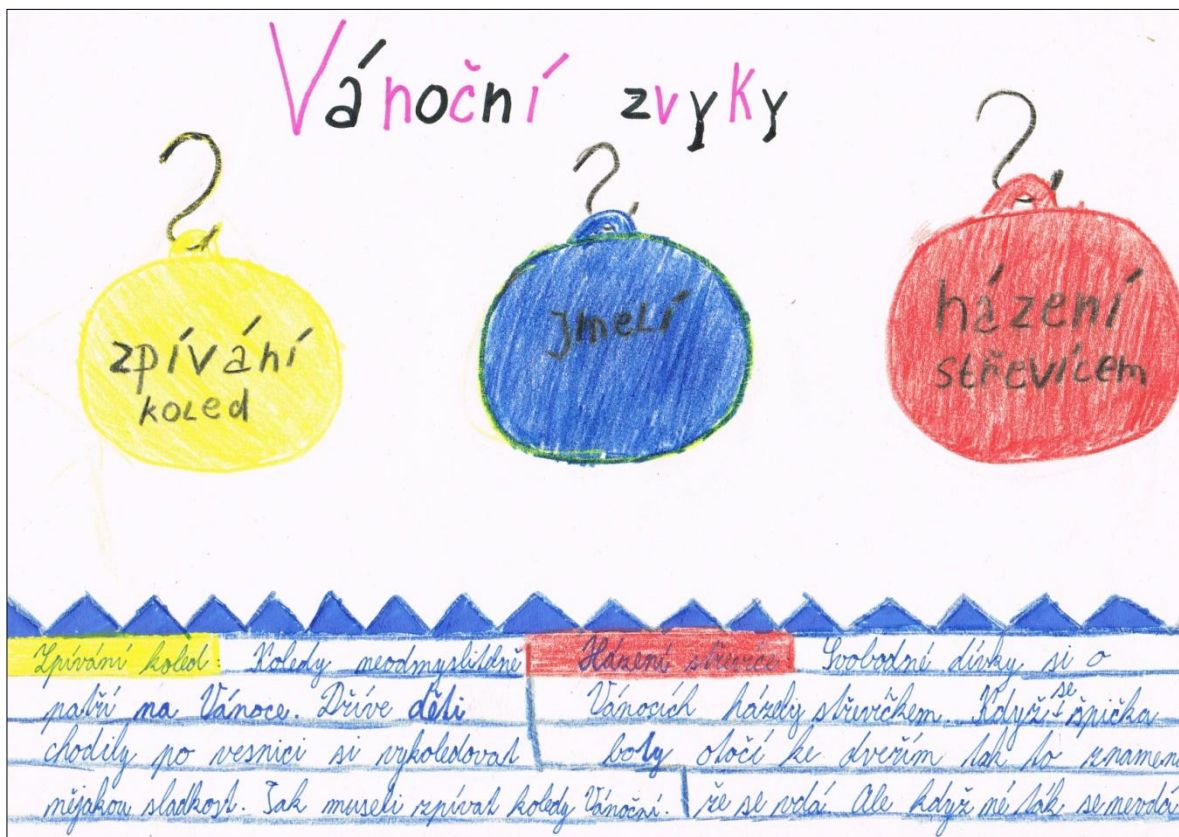 Vánoční zvyky
zpívání
koled
jmelí
házení
střevícem
Zpívání koled: Koledy neodmyslitdně
patří na Vánoce. Dříve děti
chodily po vesnici si vykoledovat
nějakou sladkost. Tak museli zpívat koledy Vánoční.
Házení střevíce Svobodné dívky si o
Vánocích házely střevíčkem. Když se špička
boty otočí ke dveřím tak to znamen
že se vdá. Ale když né tak se nevdá